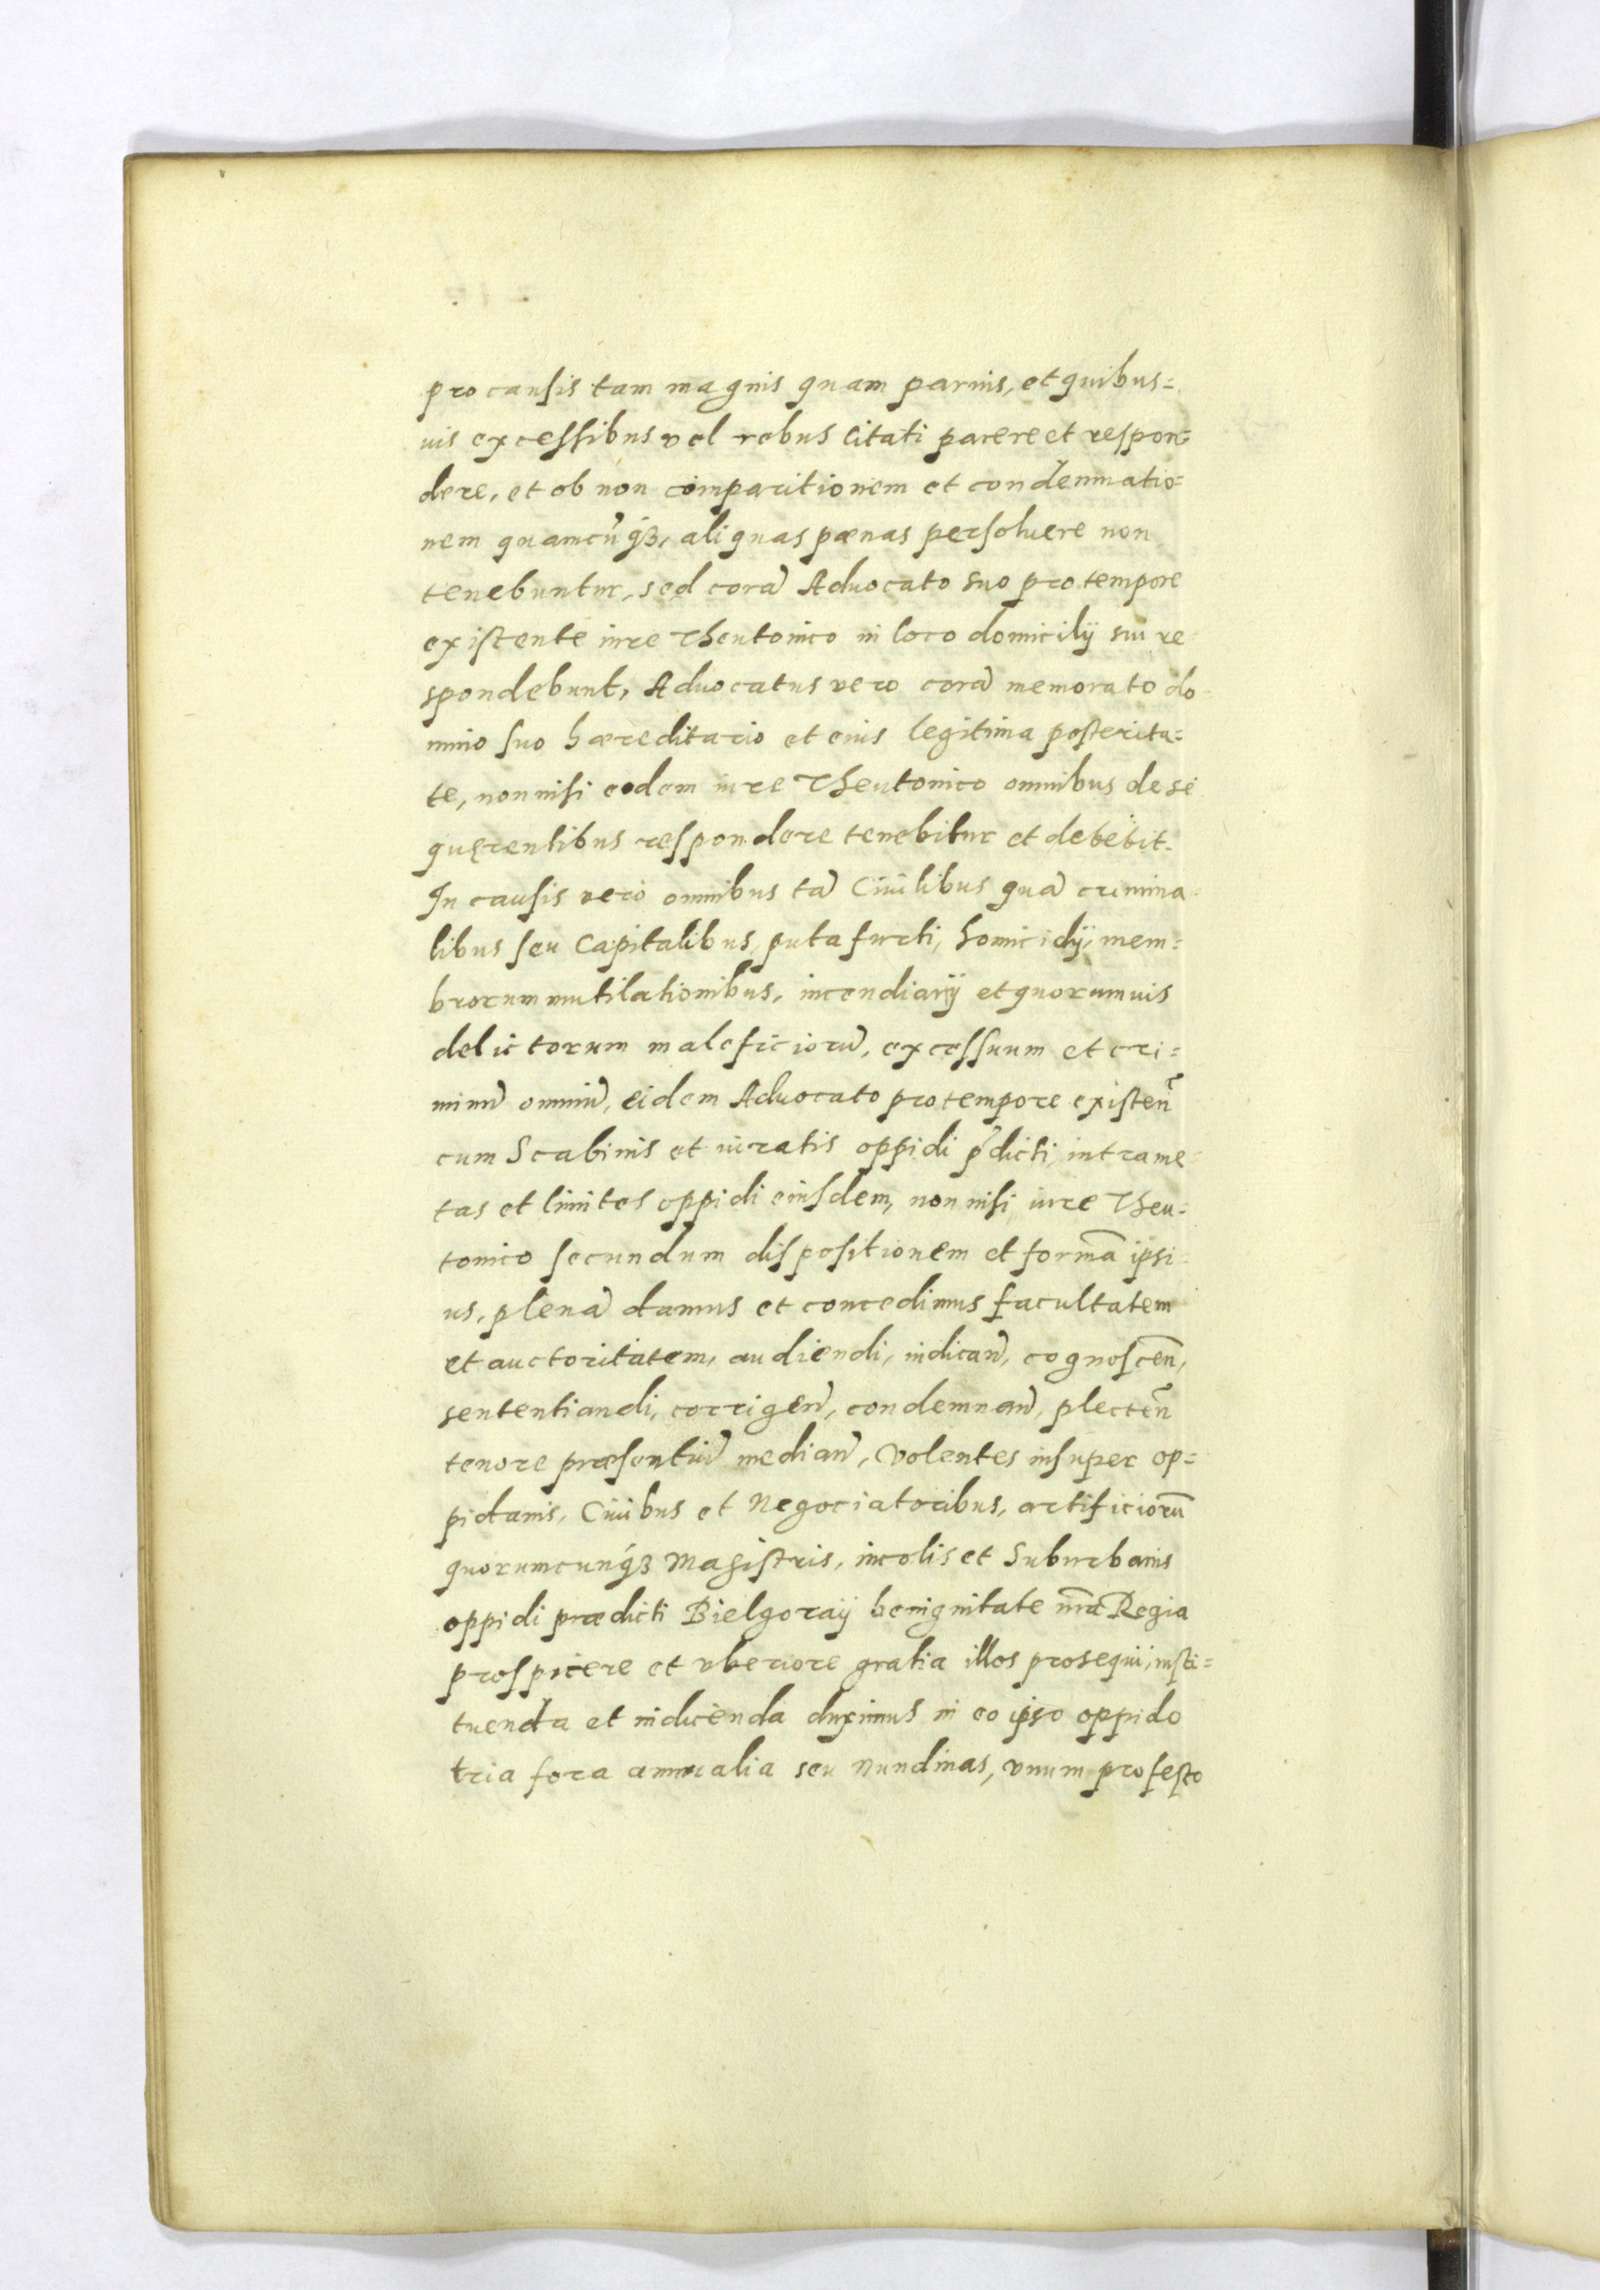 pro causis tam magnis quam paruis, et quibus=
uis excessibus vel rebus citati parere et respon=
dere, et ob non comparitionem et condemnatio=
nem quamcũqȝ, aliquas pænas persoluere non
tenebuntur, sed corã Aduocato suo pro tempore
existente iure Theutonico in loco domicilÿ sui re
spondebunt, Aduocatus vero corã memorato do=
mino suo hæreditario et eius legitima posterita=
te, non nisi eodem iure Theutonico omnibus de se
quęrentibus respondere tenebitur et debebit.
In causis vero omnibus tã Ciuilibus quã crimina=
libus seu Capitalibus, puta furti, homicidÿ, mem=
brorum mutilationibus, incendiarÿ et quorumuis
delictorum maleficiorũ, excessuum et cri=
minũ omniũ, eidem Aduocato pro tempore existeñ
cum Scabinis et iuratis oppidi p̃dicti, intra me=
tas et limites oppidi eiusdem, non nisi iure Theu=
tonico secundum dispositionem et formã ipsi=
us, plenã damus et concedimus facultatem
et auctoritatem, audiendi, iudicañ, cognosceñ,
sententiandi, corrigeñ, condemnañ, plecteñ
tenore præsentiũ mediañ, Volentes insuper op=
pidanis, Ciuibus et Negociatoribus, artificiorũ
quorumcunqȝ Magistris, incolis et Suburbanis
oppidi prædicti Bielgoraÿ benignitate nr̃a Regia
prospicere et vberiore gratia illos prosequi, insti=
tuenda et indicenda duximus in eo ipso oppido
tria fora annualia seu Nundinas, vnum pro festo